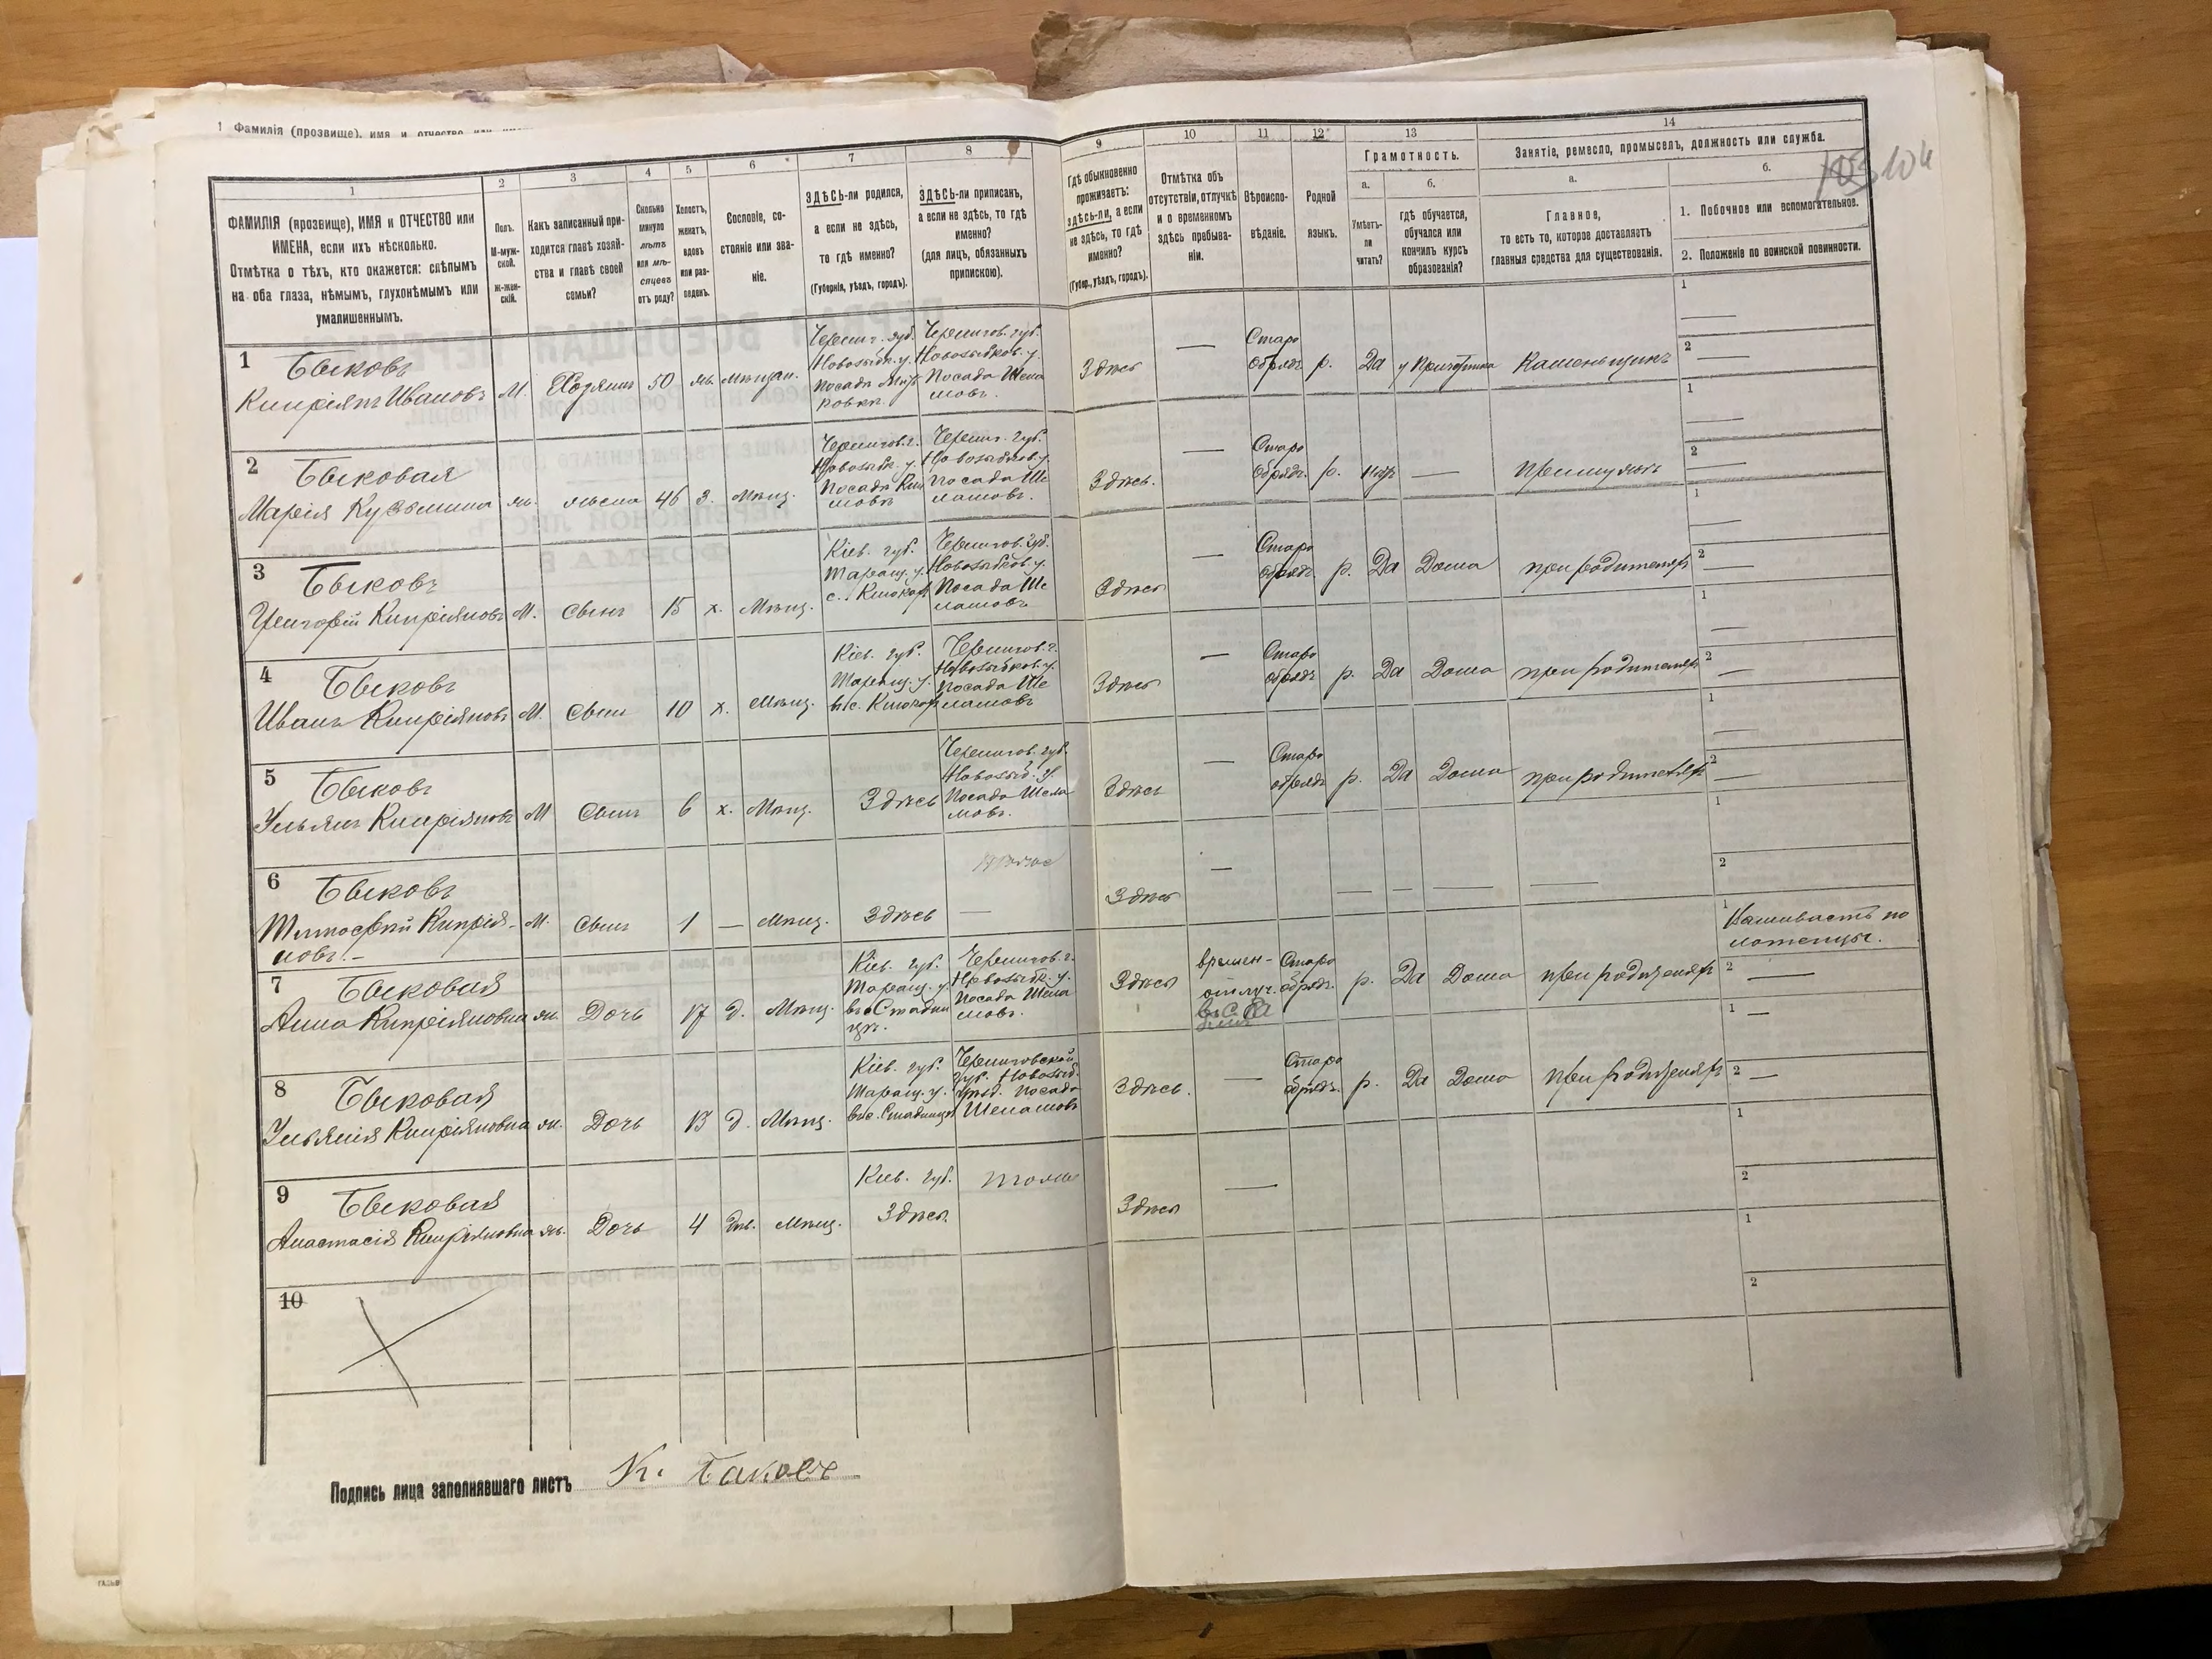 1 Фамилія (прозвище), имя и отчество или
1
2
3
4
5
6
7
8
9
10
11
12
13
14
ФАМИЛІЯ (прозвище), ИМЯ и ОТЧЕСТВО или
ИМЕНА, если ихъ нѣсколько.
Отмѣтка о тѣхъ, кто окажется: слѣпымъ
на оба глаза, нѣмымъ, глухонѣмымъ или
умалишеннымъ.
Полъ.
М-муж-
ской.
ж-жен-
скій.
Какъ записанный при-
ходится главѣ хозяй-
ства и главѣ своей
семьи?
Сколько
минуло
лѣтъ
или мѣ-
сяцевъ
отъ роду?
Холостъ,
женатъ,
вдовъ
или раз-
веденъ.
Сословіе, со-
стояніе или зва-
ніе.
ЗДѢСЬ-ли родился,
а если не здѣсь,
то гдѣ именно?
(Губернія, уѣздъ, городъ).
ЗДѢСЬ-ли приписанъ,
а если не здѣсь, то гдѣ
именно?
(для лицъ, обязанныхъ
припискою).
Гдѣ обыкновенно
проживаетъ:
здѣсь-ли, а если
не здѣсь, то гдѣ
именно?
(Губер., уѣздъ, городъ).
Отмѣтка объ
отсутствіи, отлучкѣ
и о временномъ
здѣсь пребыва-
ніи.
Вѣроиспо-
вѣданіе.
Родной
языкъ.
Грамотность.
а.
Умѣетъ-
ли
читать?
б.
гдѣ обучается,
обучался или
кончилъ курсъ
образованія?
Занятіе, ремесло, промыселъ, должность или служба.
а.
Главное,
то есть то, которое доставляетъ
главныя средства для существованія.
б.
1. Побочное или вспомогательное.
2. Положеніе по воинской повинности.
103 104
1 Быковъ
Кипріянъ Ивановъ М. Хозяинъ 50 ж. мѣщан.
Чернигов. губ.
Новозыбк. у.
Посада
Чернигов. губ.
Новозыбков. у.
Посада Шела
мовъ.
Здѣсь — Старо
обрядъ р. Да Каменьщикъ
1 —
2 —
2 Быковая
Марія Кузьмина ж. жена 46 З. Мѣщ.
Чернигов. г.
Новозыбк. у.
Посада
Черниг. губ.
Новозыбков. у.
Посада Ше
ламовъ.
Здѣсь. — Старо
обрядъ. р. — при мужѣ
1 —
2 —
3 Быковъ
Григорій Кипріяновъ М. Сынъ 15 х. Мѣщ.
Кіев. губ.
Таращ. у.
Чернигов. губ.
Новозыбков. у.
Посада Ше
ламовъ
Здѣсь — Старо
обрядъ. р. Да Дома при родителяхъ
1 —
2 —
4 Быковъ
Иванъ Кипріяновъ М. Сынъ 10 х. Мѣщ.
Кіев. губ.
Таращ. у.
Чернигов. г.
Новозыбков. у.
Посада Ше
ламовъ
Здѣсь — Старо
обрядъ р. Да Дома при родителяхъ
1 —
2 —
5 Быковъ
Ульянъ Кипріяновъ М Сынъ 6 х. Мѣщ. Здѣсь
Чернигов. губ.
Новозыб. у.
Посада Шела
мовъ.
Здѣсь — Старо
обрядъ р. Да Дома при родителяхъ
1 —
2 —
6 Быковъ
Тимофей Кипрія-
новъ.- М. Сынъ 1 — Мѣщ. Здѣсь — Здѣсь — — — — —
1
2
7 Быковая
Анна Кипріяновна ж. Дочь 17 д. Мѣщ.
Кіев. губ.
Таращ. у.
в с. Стадни
цѣ.
Чернигов. г.
Новозыбк. у.
Посада Шела
мовъ.
Здѣсь времен-
отлуч. Старо
обрядъ. р. Да Дома при родителяхъ
1 Вышиваетъ по
лотенцы.
2 —
8 Быковая
Ульянія Кипріяновна ж. Дочь 13 д. Мѣщ.
Кіев. губ.
Таращ. у.
в с. Стадницѣ
Черниговской
губ. Новозыб.
уѣзд. Посада
Шеламовъ
Здѣсь. — Старо
обрядъ. р. Да Дома при родителяхъ
1 —
2 —
9 Быковая
Анастасія Кипріяновна ж. Дочь 4 дѣв. Мѣщ.
Кіев. губ.
Здѣсь.
Здѣсь —
1
2
10
1
2
Подпись лица заполнявшаго листъ К. Быковъ